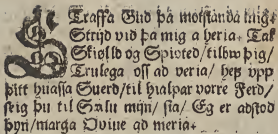 Straffa Guð þá mótstanda mig/
Strijd við þá mig a heria. Tak
Skiølld og Spioted/ tilbw þig/
Trulega oss að veria/ hef vpp
þitt huassa Suerd/ til hialpar vorre Ferd/
seig þu til Sálu mijn/ sia/ Eg er adstod
þijn/ marga Ovine að meria.